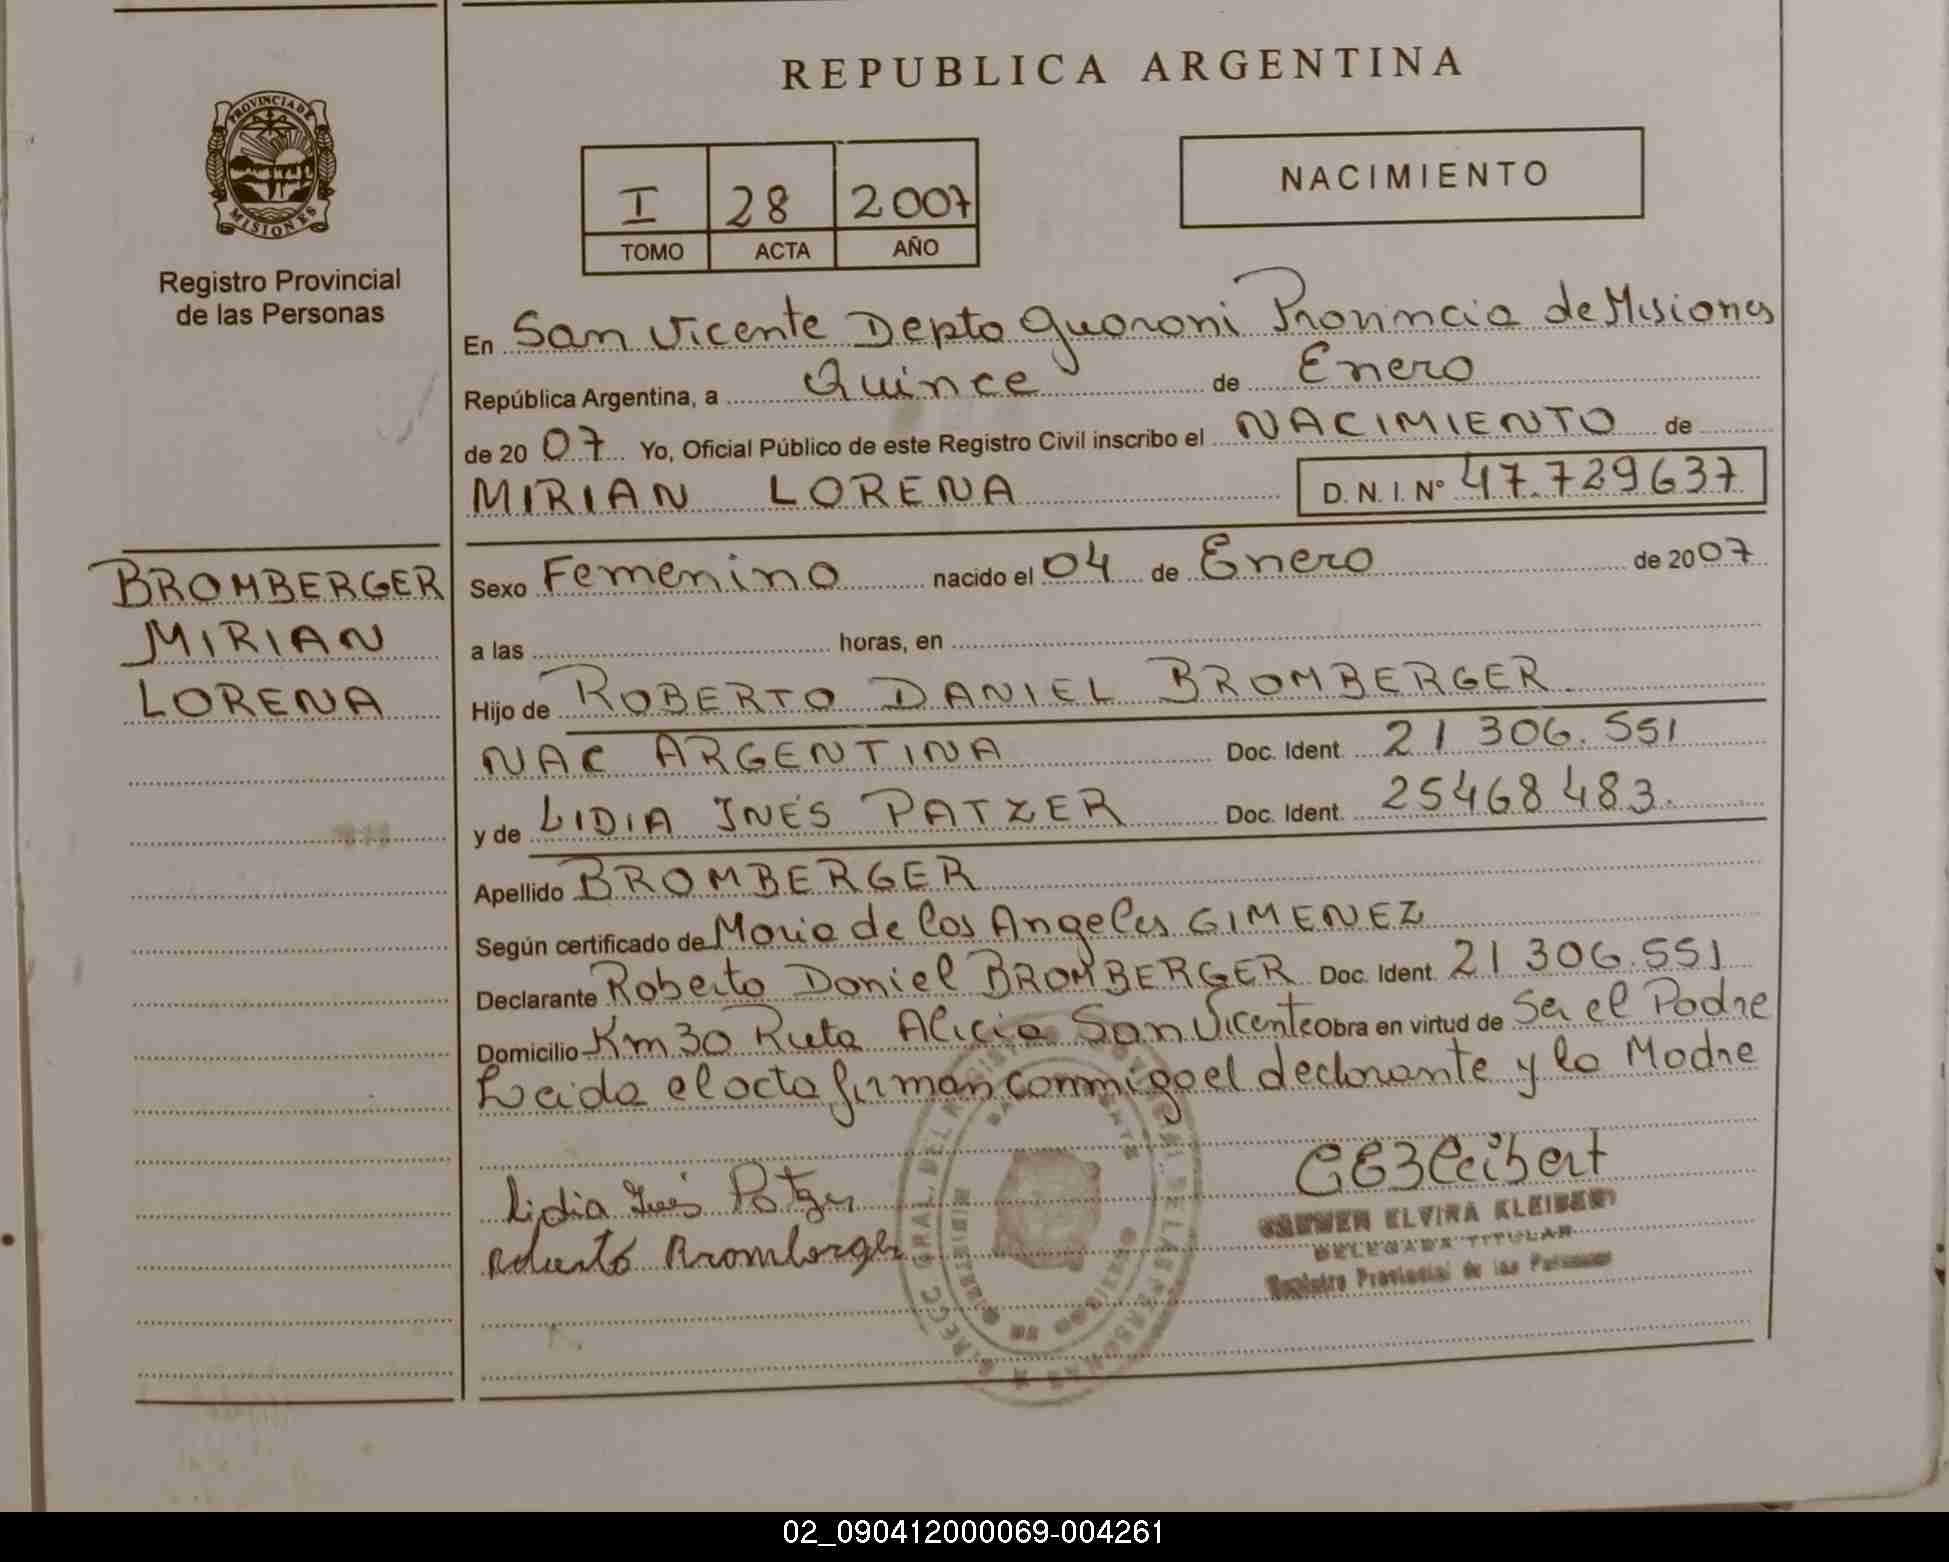 REPUBLICA ARGENTINA
PROVINCIA DE
MISIONES
Registro Provincial
de las Personas
I 28 2007
TOMO ACTA AÑO
NACIMIENTO
En San Vicente Depto Guarani Provincia de Misiones
República Argentina, a Quince de Enero
de 20 07 Yo, Oficial Público de este Registro Civil inscribo el NACIMIENTO de
MIRIAN LORENA D.N.I. Nº 47.729637
BROMBERGER
MIRIAN
LORENA
Sexo Femenino nacido el 04 de Enero de 2007
a las horas, en
Hijo de ROBERTO DANIEL BROMBERGER
NAC ARGENTINA Doc. Ident. 21 306.551
y de LIDIA INÉS PATZER Doc. Ident. 25468483.
Apellido BROMBERGER
Según certificado de Maria de los Angeles GIMENEZ
Declarante Roberto Daniel BROMBERGER Doc. Ident. 21 306.551
Domicilio Km 30 Ruta Alicia San Vicente Obra en virtud de Ser el Padre
Leida el acta firman conmigo el declarante y la Madre
Lidia Inés Patzer
Roberto Bromberger
ELVIRA KLEIBERT
DELEGADA TITULAR
Registro Provincial de las Personas
02_090412000069-004261